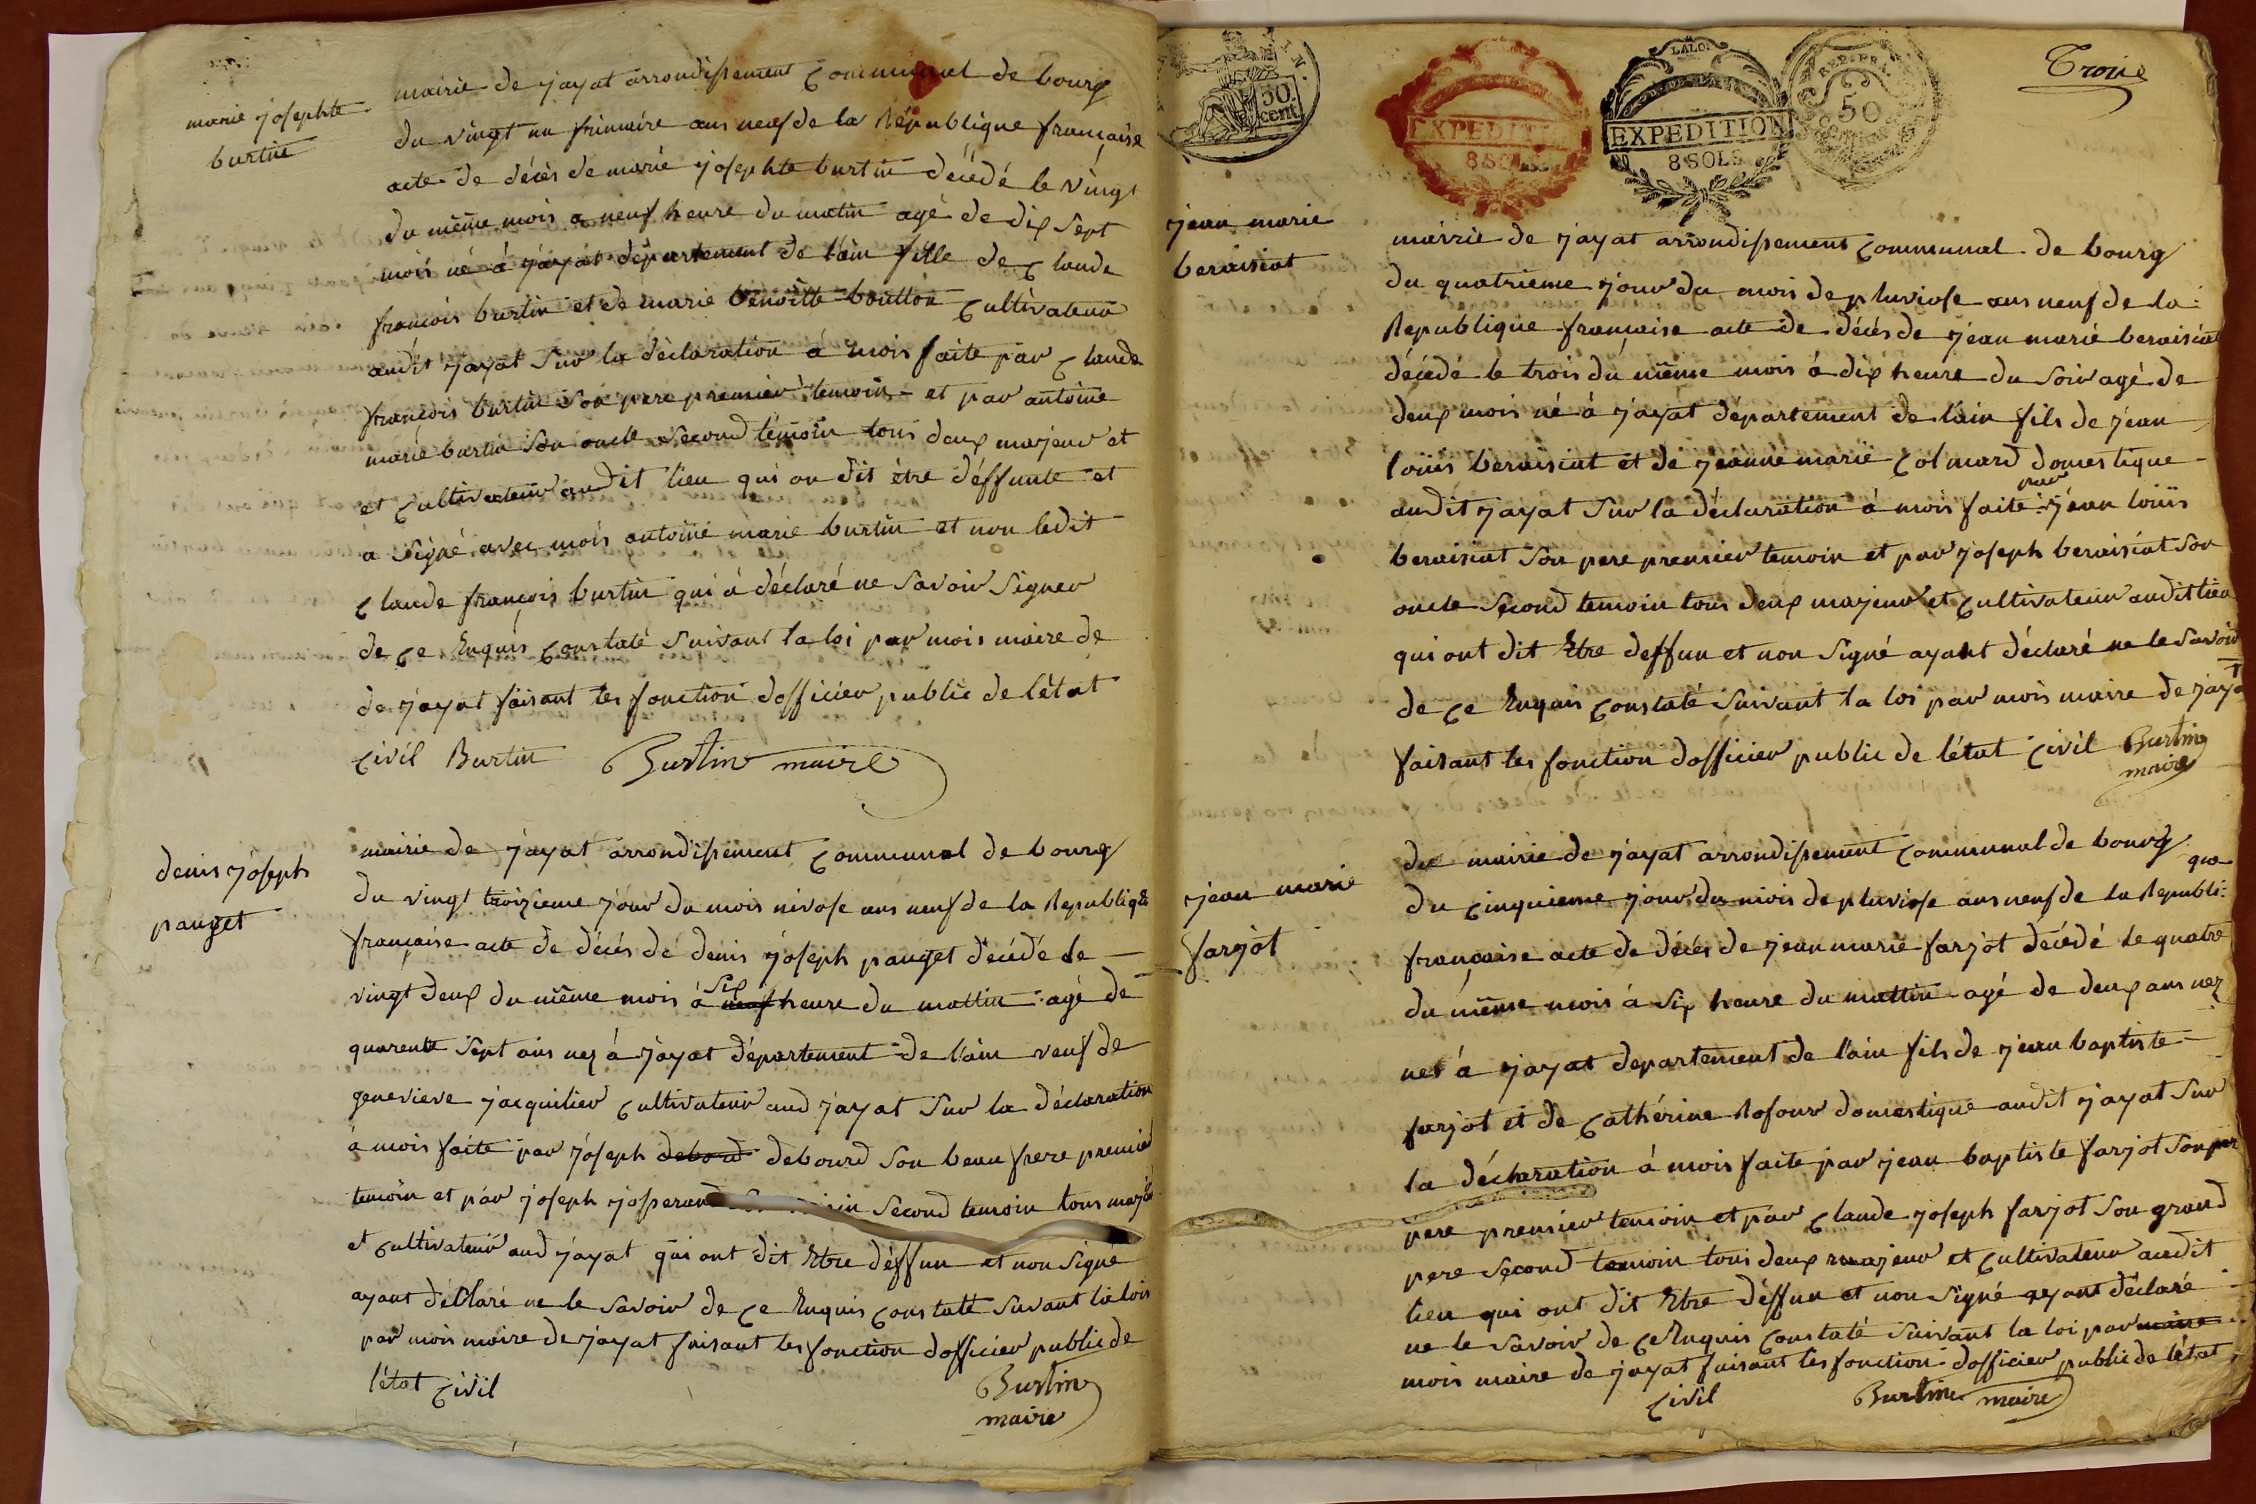 marie josephte
burtin
mairie de jayat arrondissement communal de bourg
du vingt un frimaire ans neuf de la République française
acte de décès de marie josephte burtin décédé le vingt
du même mois a neuf heure du matin agé de dix sept
mois né à jayat département de l'ain fille de claude
françois burtin et de marie benoitte boutton cultivateur
audit jayat sur la déclaration à mois faite par claude
françois burtin son pere premier temoin et par antoine
marie burtin son oncle second temoin tous deux majeur et
et cultivateur audit lieu qui on dit être deffunte et
a signé avec mois antoine marie burtin et non ledit
claude françois burtin qui à déclaré ne savoir signer
de ce Enquis constaté suivant la loi par mois maire de
de jayat faisant les fonction dofficier public de létat
civil Burtin Burtin maire
denis joseph
pauget
mairie de jayat arrondissement communal de bourg
du vingt troizieme jour du mois nivose ans neuf de la Republiqe
française acte de décés de denis joseph pauget décédé le
vingt deux du même mois à neuf six heure du mattin agé de
quarente sept ans nez à jayat département de l'ain veuf de
genevieve jacquilier cultivateur aud jayat sur la déclaration
à mois faite par joseph debord debourd son beau frere premier
temoin et par joseph josserand second temoin tous majeur
et cultivateur aud jayat qui ont dit Etre deffun et non signé
ayant déclaré ne le savoir de ce Enquis constatté suivant la lois
par mois maire de jayat faisant les fonction dofficier public de
létat civil
Burtin
maire
50
cent
EXPEDITION
8 SOLS
LALOI
EXPEDITION
8 SOLS
REP. FRA.
50
Trois
jean marie
beraisiat
mairie de jayat arrondissement communal de bourg
du quatrieme jour du mois de pluviose ans neuf de la
Republique française acte de décés de jean marie beraisiat
décédé le trois du même mois à dix heure du soir agé de
deux mois né à jayat département de l'ain fils de jean
loüis beraisiat et de jeanne marie colmard domestique
audit jayat sur la déclaration à mois faite par jean loüis
beraisiat son pere premier temoin et par joseph beraisiat son
oncle second temoin tous deux majeur et cultivateur audit lieu
qui ont dit Etre deffun et non signé ayant déclaré ne le savoir
de ce Enquis constaté suivant la loi par mois maire de jayat
faisant les fonction dofficier public de létat civil Burtin
maire
jean marie
farjot
de mairie de jayat arrondissement communal de bourg
du cinquieme jour du mois de pluviose ans neuf de la Republi-que
française acte de décés de jean marie farjot décédé le quatre
du même mois à six heure du mattin agé de deux ans nez
nes à jayat departement de l'ain fils de jean baptiste
farjot et de cathérine lofour domestique audit jayat sur
la déclaration à mois faite par jean baptiste farjot son per
pere premier temoin et par claude joseph farjot son grand
pere second temoin tous deux majeur et cultivateur audit
lieu qui ont dit Etre deffun et non signé ayant déclaré
ne le savoir de ce Enquis constaté suivant la loi par maire
mois maire de jayat faisant les fonction dofficier public de létat
civil Burtin maire